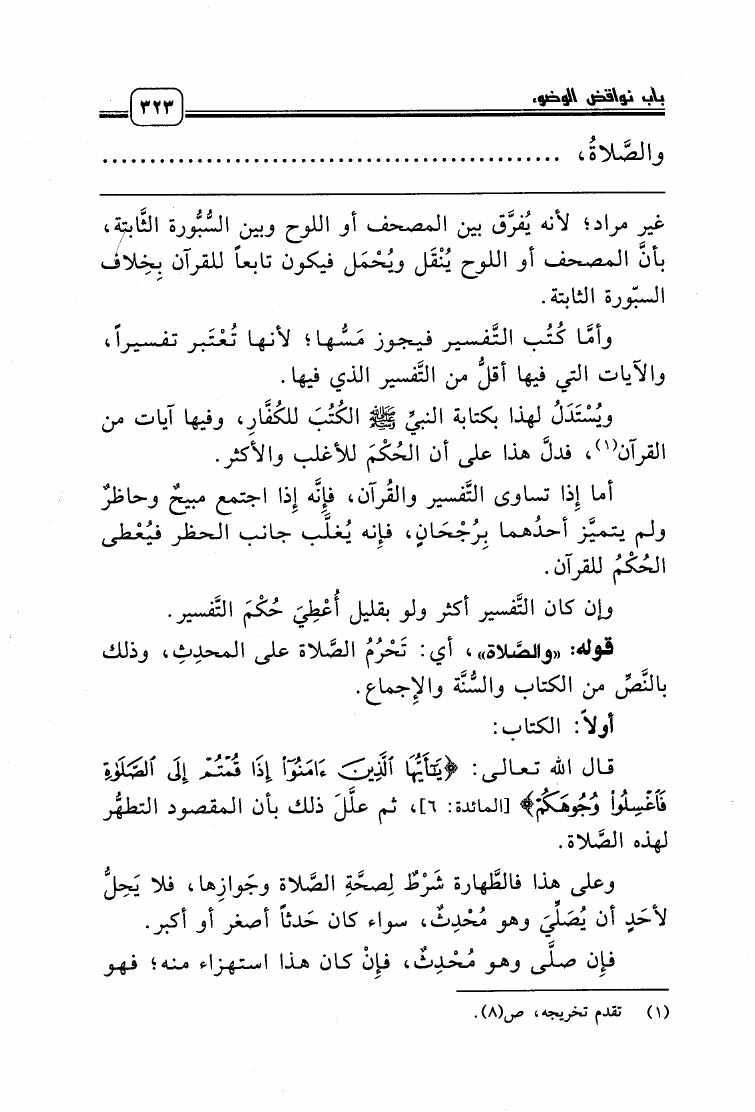 باب نواقض الوضوء
٣٢٣
والصَّلاةُ، ................................................
غير مراد؛ لأنه يُفرَّق بين المصحف أو اللوح وبين السُّبُّورة الثَّابتة،
بأنَّ المصحف أو اللوح يُنْقَل ويُحْمَل فيكون تابعاً للقرآن بِخِلاف
السبّورة الثابتة.
وأمَّا كُتُب التَّفسير فيجوز مَسُّها؛ لأنها تُعْتَبر تفسيراً،
والآيات التي فيها أقلُّ من التَّفسير الذي فيها.
ويُسْتَدَلُ لهذا بكتابة النبيِّ ﷺ الكُتُبَ للكُفَّارِ، وفيها آيات من
القرآن(١)، فدلَّ هذا على أن الحُكْمَ للأغلب والأكثر.
أما إذا تساوى التَّفسير والقُرآن، فإنَّه إذا اجتمع مبيحٌ وحاظرٌ
ولم يتميَّز أحدُهما بِرُجْحَانٍ، فإنه يُغلَّب جانب الحظر فيُعْطى
الحُكْمُ للقرآن.
وإن كان التَّفسير أكثر ولو بقليل أُعْطِيَ حُكْمَ التَّفسير.
قوله: «والصَّلاة»، أي: تَحْرُمُ الصَّلاة على المحدِثِ، وذلك
بالنَّصِّ من الكتاب والسُّنَّة والإجماع.
أولاً: الكتاب:
قال الله تعالى: ﴿يَٰٓأَيُّهَا ٱلَّذِينَ ءَامَنُوٓا۟ إِذَا قُمْتُمْ إِلَى ٱلصَّلَوٰةِ
فَٱغْسِلُوا۟ وُجُوهَكُمْ﴾ [المائدة: ٦]، ثم علَّلَ ذلك بأن المقصود التطهُّر
لهذه الصَّلاة.
وعلى هذا فالطَّهارة شَرْطٌ لِصحَّةِ الصَّلاة وجَوازِها، فلا يَحِلُّ
لأحَدٍ أن يُصَلِّيَ وهو مُحْدِثٌ، سواء كان حَدثاً أصغر أو أكبر.
فإن صلَّى وهو مُحْدِثٌ، فإنْ كان هذا استهزاء منه؛ فهو
(١) تقدم تخريجه، ص(٨).